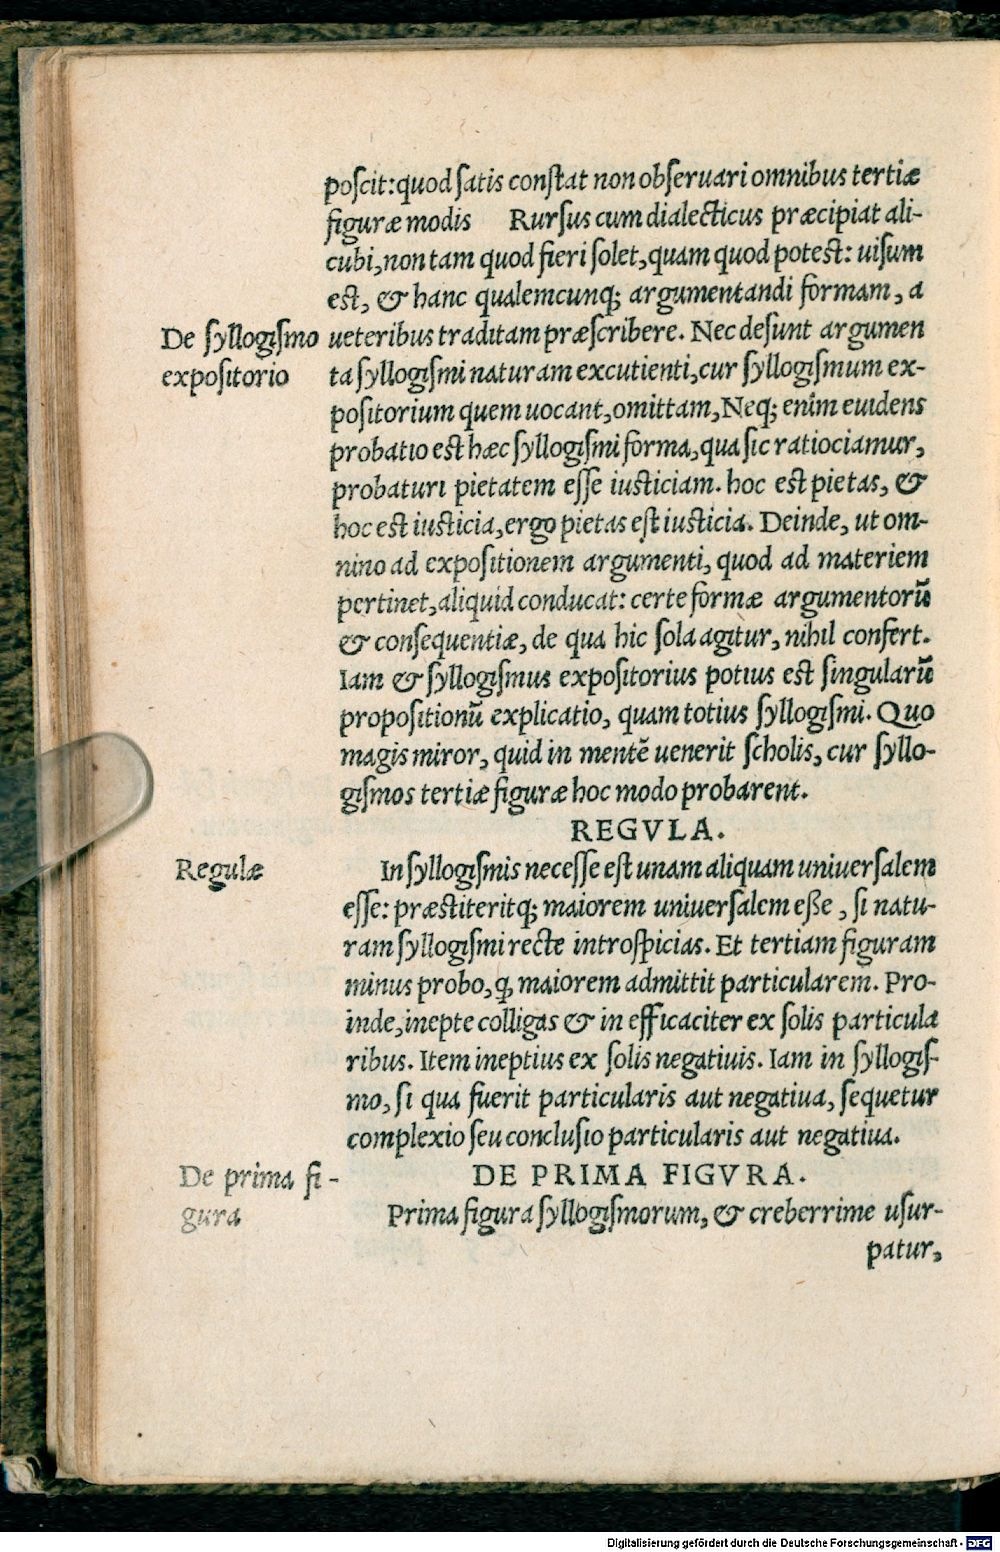 poscit: quod satis constat non obseruari omnibus tertiæ
figuræ modis Rursus cum dialecticus præcipiat ali-
cubi, non tam quod fieri solet, quam quod potest: uisum
est, & hanc qualemcunq; argumentandi formam, a
De syllogismo
expositorio
ueteribus traditam præscribere. Nec desunt argumen
ta syllogismi naturam excutienti, cur syllogismum ex-
positorium quem uocant, omittam, Neq; enim euidens
probatio est hæc syllogismi forma, qua sic ratiociamur,
probaturi pietatem esse iusticiam. hoc est pietas, &
hoc est iusticia, ergo pietas est iusticia. Deinde, ut om-
nino ad expositionem argumenti, quod ad materiem
pertinet, aliquid conducat: certe formæ argumentorū
& consequentiæ, de qua hic sola agitur, nihil confert.
Iam & syllogismus expositorius potius est singularū
propositionū explicatio, quam totius syllogismi. Quo
magis miror, quid in mentē uenerit scholis, cur syllo-
gismos tertiæ figuræ hoc modo probarent.
REGVLA.
Regulæ
In syllogismis necesse est unam aliquam uniuersalem
esse: præstiteritq; maiorem uniuersalem eße, si natu-
ram syllogismi recte introspicias. Et tertiam figuram
minus probo, q, maiorem admittit particularem. Pro-
inde, inepte colligas & in efficaciter ex solis particula
ribus. Item ineptius ex solis negatiuis. Iam in syllogis-
mo, si qua fuerit particularis aut negatiua, sequetur
complexio seu conclusio particularis aut negatiua.
De prima fi-
gura
DE PRIMA FIGVRA.
Prima figura syllogismorum, & creberrime usur-
patur,
Digitalisierung gefördert durch die Deutsche Forschungsgemeinschaft - DFG